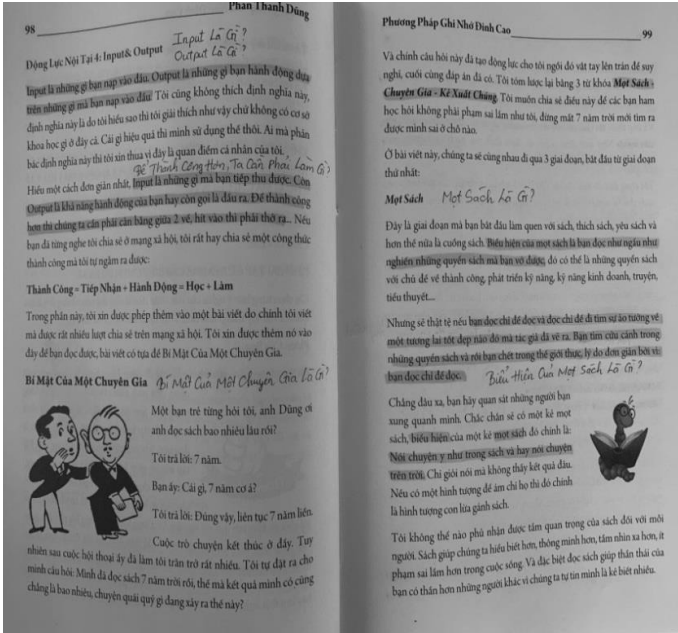 98
Phan Thanh Dũng
Động Lực Nội Tại 4: Input& Output
Input Là Gì?
Output Là Gì?
Input là những gì bạn nạp vào đầu. Output là những gì bạn hành động dựa
trên những gì mà bạn nạp vào đầu. Tôi cũng không thích định nghĩa này,
định nghĩa này là do tôi hiểu sao thì tôi giải thích như vậy chứ không có cơ sở
khoa học gì ở đây cả. Cái gì hiệu quả thì mình sử dụng thế thôi. Ai mà phản
bác định nghĩa này thì tôi xin thua vì đây là quan điểm cá nhân của tôi.
Để Thành Công Hơn, Ta Cần Phải Làm Gì?
Hiểu một cách đơn giản nhất, Input là những gì mà bạn tiếp thu được. Còn
Output là khả năng hành động của bạn hay còn gọi là đầu ra. Để thành công
hơn thì chúng ta cần phải cân bằng giữa 2 vế, hít vào thì phải thở ra... Nếu
bạn đã từng nghe tôi chia sẻ ở mạng xã hội, tôi rất hay chia sẻ một công thức
thành công mà tôi tự ngẫm ra được:
Thành Công = Tiếp Nhận + Hành Động = Học + Làm
Trong phần này, tôi xin được phép thêm vào một bài viết do chính tôi viết
mà được rất nhiều lượt chia sẻ trên mạng xã hội. Tôi xin được thêm nó vào
đây để bạn đọc được, bài viết có tựa đề Bí Mật Của Một Chuyên Gia.
Bí Mật Của Một Chuyên Gia
Bí Mật Của Một Chuyên Gia Là Gì?
Một bạn trẻ từng hỏi tôi, anh Dũng ơi
anh đọc sách bao nhiêu lâu rồi?
Tôi trả lời: 7 năm.
Bạn ấy: Cái gì, 7 năm cơ á?
Tôi trả lời: Đúng vậy, liên tục 7 năm liền.
Cuộc trò chuyện kết thúc ở đấy. Tuy
nhiên sau cuộc hội thoại ấy đã làm tôi trăn trở rất nhiều. Tôi tự đặt ra cho
mình câu hỏi: Mình đã đọc sách 7 năm trời rồi, thế mà kết quả mình có cũng
chẳng là bao nhiêu, chuyện quái quỷ gì đang xảy ra thế này?
Phương Pháp Ghi Nhớ Đỉnh Cao
99
Và chính câu hỏi này đã tạo động lực cho tôi ngồi đó vắt tay lên trán để suy
nghĩ, cuối cùng đáp án đã có. Tôi tóm lược lại bằng 3 từ khóa Mọt Sách -
Chuyên Gia - Kẻ Xuất Chúng. Tôi muốn chia sẻ điều này để các bạn ham
học hỏi không phải phạm sai lầm như tôi, đừng mất 7 năm trời mới tìm ra
được mình sai ở chỗ nào.
Ở bài viết này, chúng ta sẽ cùng nhau đi qua 3 giai đoạn, bắt đầu từ giai đoạn
thứ nhất:
Mọt Sách
Mọt Sách Là Gì?
Đây là giai đoạn mà bạn bắt đầu làm quen với sách, thích sách, yêu sách và
hơn thế nữa là cuồng sách. Biểu hiện của mọt sách là bạn đọc như ngấu như
nghiến những quyển sách mà bạn vớ được, đó có thể là những quyển sách
với chủ đề về thành công, phát triển kỹ năng, kỹ năng kinh doanh, truyện,
tiểu thuyết...
Nhưng sẽ thật tệ nếu bạn đọc chỉ để đọc và đọc chỉ để đi tìm sự ảo tưởng về
một tương lai tốt đẹp nào đó mà tác giả đã vẽ ra. Bạn tìm cứu cánh trong
những quyển sách và rồi bạn chết trong thế giới thực, lý do đơn giản bởi vì:
bạn đọc chỉ để đọc.
Biểu Hiện Của Mọt Sách Là Gì?
Chẳng đâu xa, bạn hãy quan sát những người bạn
xung quanh mình. Chắc chắn sẽ có một kẻ mọt
sách, biểu hiện của một kẻ mọt sách đó chính là:
Nói chuyện y như trong sách và hay nói chuyện
trên trời. Chỉ giỏi nói mà không thấy kết quả đâu.
Nếu có một hình tượng để ám chỉ họ thì đó chính
là hình tượng con lừa gánh sách.
Tôi không thể nào phủ nhận được tầm quan trọng của sách đối với mỗi
người. Sách giúp chúng ta hiểu biết hơn, thông minh hơn, tầm nhìn xa hơn, ít
phạm sai lầm hơn trong cuộc sống. Và đặc biệt đọc sách giúp thần thái của
bạn có thần hơn những người khác vì chúng ta tự tin mình là kẻ biết nhiều.